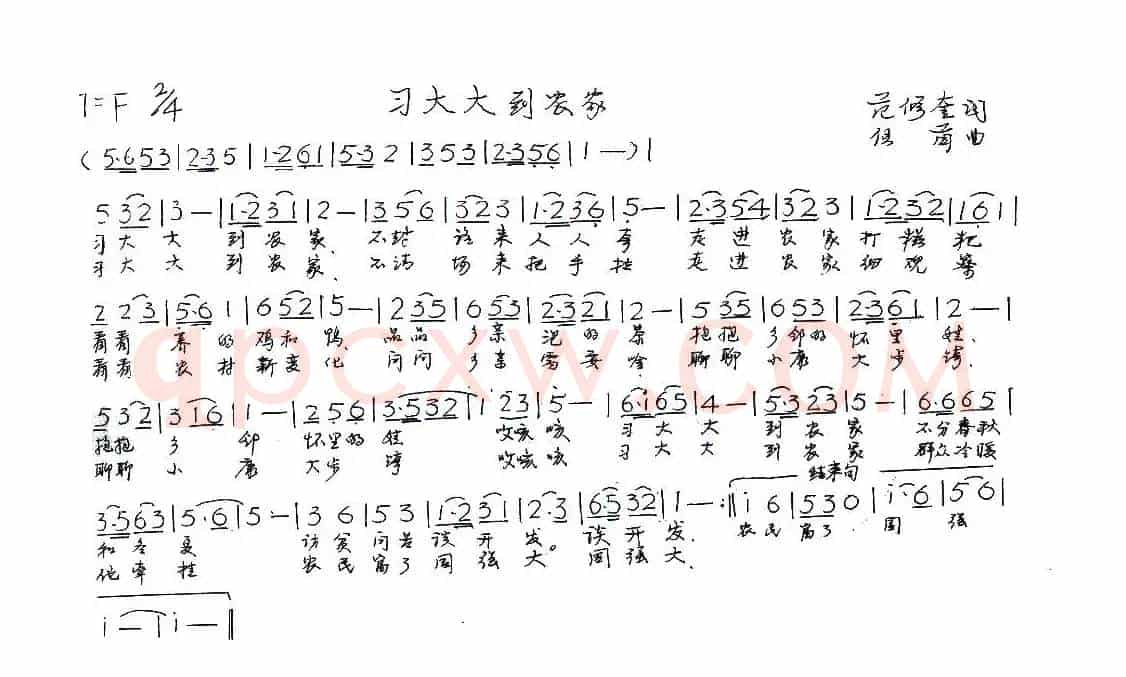 1=F 2/4 习大大到农家 范修奎词
曲
(5·653|2·35|1·261|5·32|353|2·356|1—)|
5 32|3—|1·231|2—|3 56|323|1·236|5—|2·354|323|1·232|161|
习大大 到农家、不 请 来人人夸 走进农家打糍粑
习大大 到农家、不请 场来把手拉 走进农家细观察
2 23|5·61|6 52|5—|2 35|6 53|2·321|2—|5 35|6 53|2·361|2—|
看看 养的鸡和鸭、品品乡亲泡的茶 抱抱乡邻的怀里娃、
看看 农村新变化 问问乡亲需要啥 聊聊小康大步
532|316|1—|256|3·532|1 23|5—|6·165|4—|5·323|5—|6·665|
抱抱乡邻怀里的娃 哎咳咳 习大大到农家 不分春秋
聊聊小康大步 哎咳咳 习大大到农家 群众冷暖
结束句
3·563|5·6|5—|36|53|1·231|2·3|6·532|1—:‖i6|530|i·6|56|
和冬夏 访贫问苦谈开发、谈开发、 农民富了国强
他牵挂 农民富了国强大。国强大、
i—|i—‖
qpcxw.com